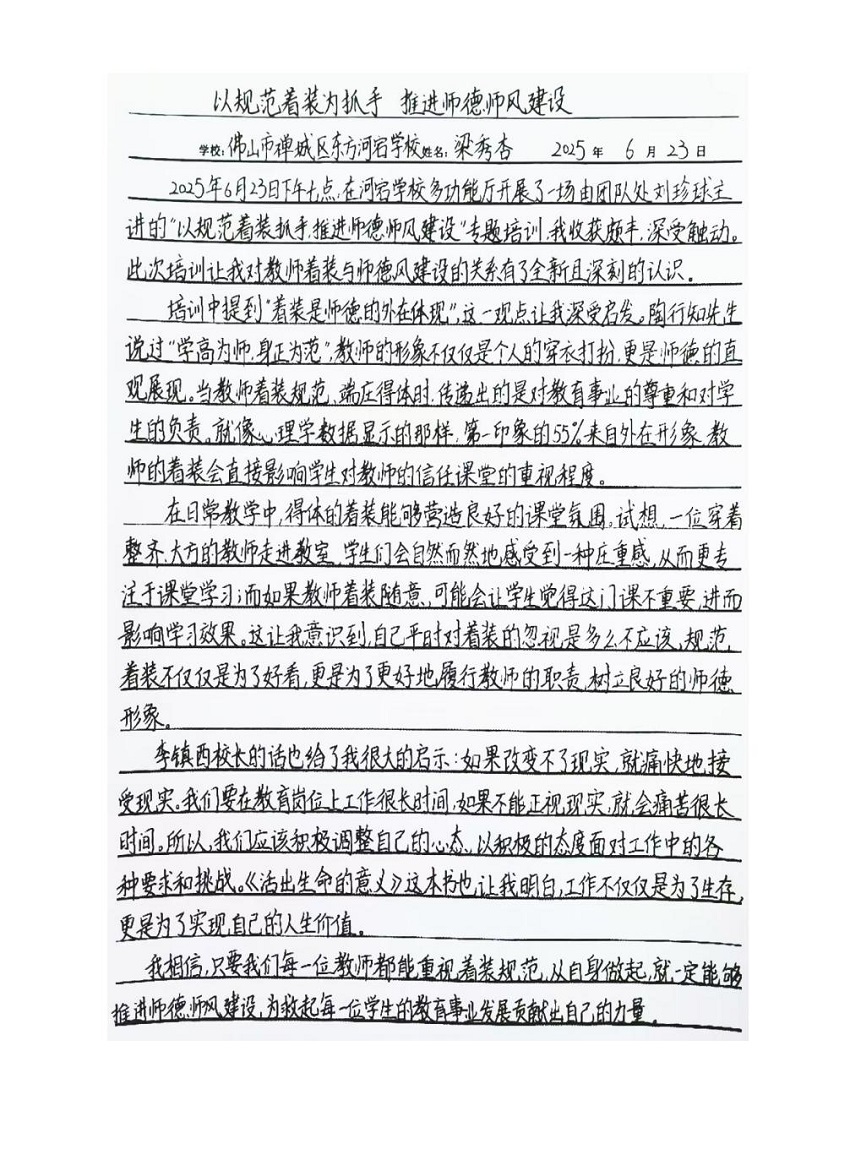 以规范着装为抓手 推进师德师风建设
学校：佛山市禅城区东方河宕学校 姓名：梁秀杏 2025 年 6 月 23 日
2025年6月23日下午七点，在河宕学校多功能厅开展了一场由团队处刘珍球主
进的“以规范着装抓手，推进师德师风建设”专题培训，我收获颇丰，深受触动。
此次培训让我对教师着装与师德风建设的关系有了全新且深刻的认识。
培训中提到“着装是师德的外在体现”，这一观点让我深受启发。陶行知先生
说过“学高为师，身正为范”，教师的形象不仅仅是个人的穿衣打扮，更是师德的直
观展现。当教师着装规范、端庄得体时，传递出的是对教育事业的尊重和对学
生的负责。就像心理学数据显示的那样，第一印象的55%来自外在形象，教
师的着装会直接影响学生对教师的信任课堂的重视程度。
在日常教学中，得体的着装能够营造良好的课堂氛围。试想，一位穿着
整齐、大方的教师走进教室，学生们会自然而然地感受到一种庄重感，从而更专
注于课堂学习；而如果教师着装随意，可能会让学生觉得这门课不重要，进而
影响学习效果。这让我意识到，自己平时对着装的忽视是多么不应该，规范
着装不仅仅是为了好看，更是为了更好地履行教师的职责，树立良好的师德
形象。
李镇西校长的话也给了我很大的启示：如果改变不了现实，就痛快地接
受现实。我们要在教育岗位上工作很长时间，如果不能正视现实，就会痛苦很长
时间。所以，我们应该积极调整自己的心态，以积极的态度面对工作中的各
种要求和挑战。《活出生命的意义》这本书也让我明白，工作不仅仅是为了生存，
更是为了实现自己的人生价值。
我相信，只要我们每一位教师都能重视着装规范，从自身做起，就一定能够
推进师德师风建设，为救起每一位学生的教育事业发展贡献出自己的力量。